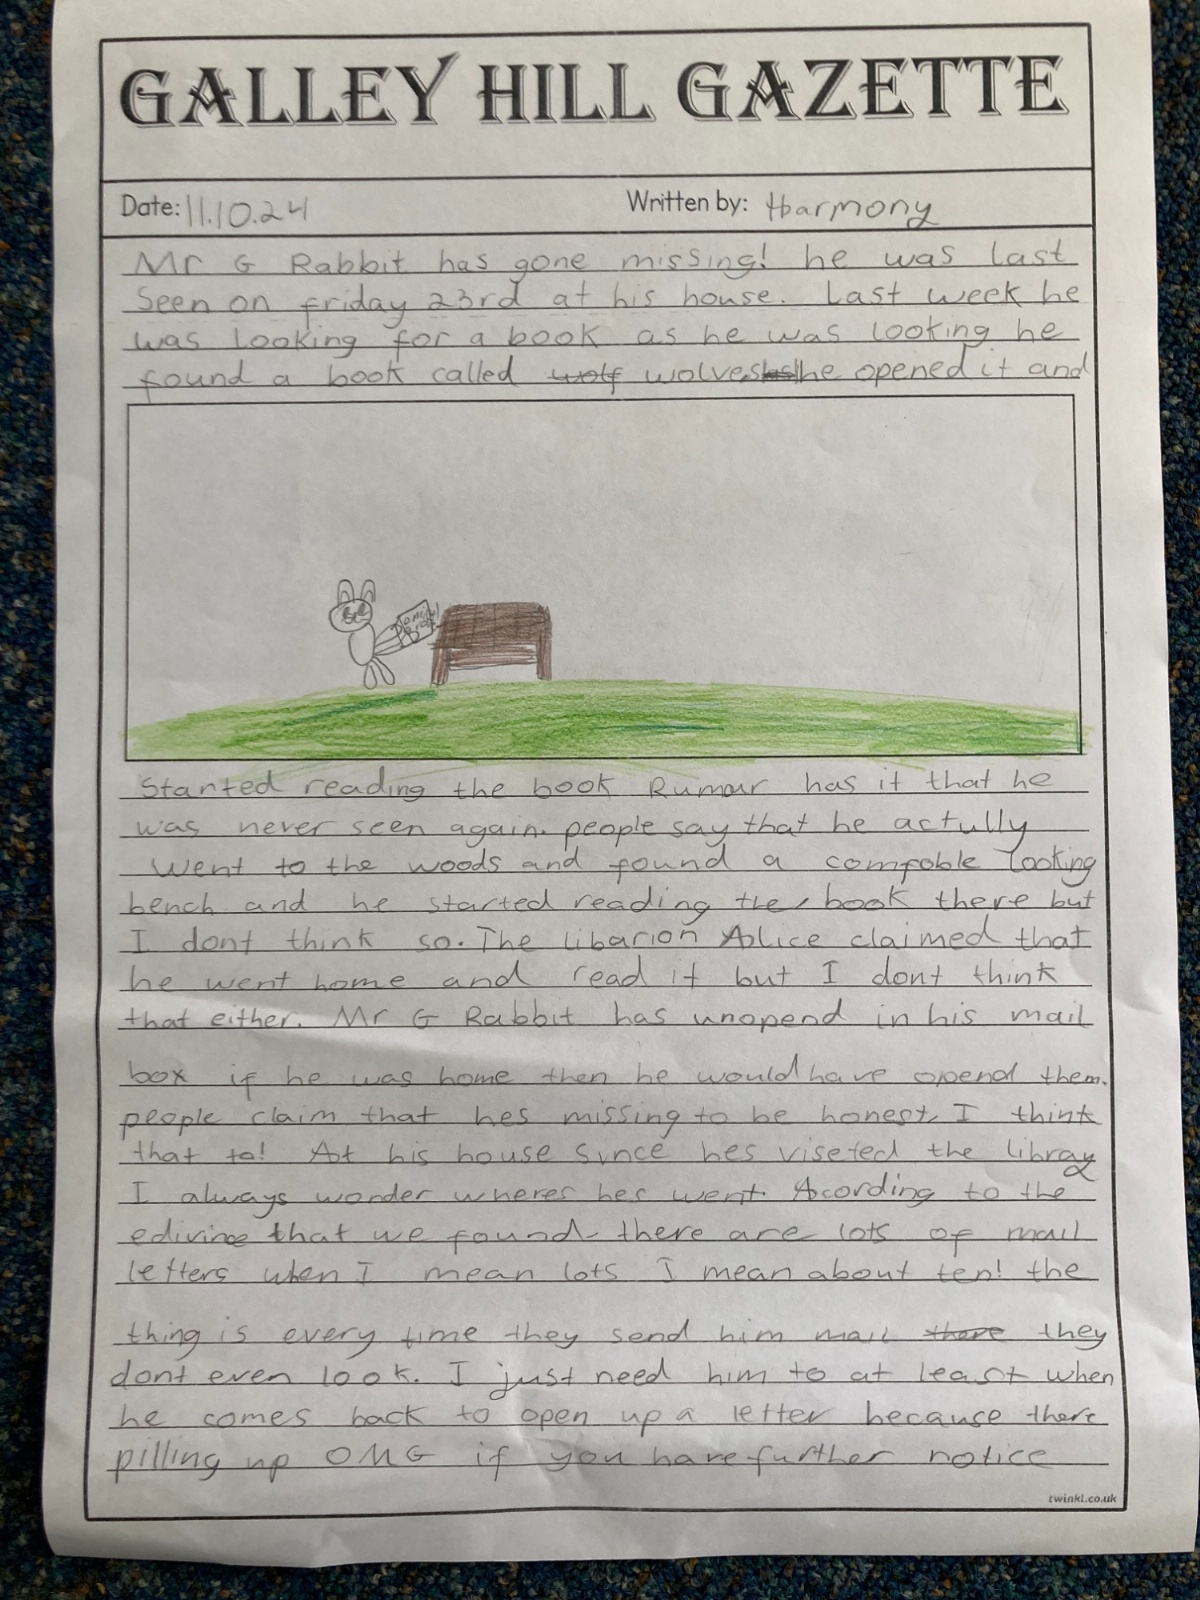 GALLEY HILL GAZETTE
Date: 11.10.24 Written by: Harmony
Mr G Rabbit has gone missing! he was last
seen on friday 23rd at his house. Last week he
was looking for a book as he was looking he
found a book called wolf wolves he opened it and
Started reading the book Rumour has it that he
was never seen again. people say that he actully
went to the woods and found a comfoble looking
bench and he started reading the book there but
I dont think so. The libarion Alice claimed that
he went home and read it but I dont think
that either. Mr G Rabbit has unopend in his mail
box if he was home then he would have opend them.
people claim that hes missing to be honest, I think
that to! At his house since hes viseted the libray
I always wonder wheres hes went. Acording to the
edivince that we found there are lots of mail
letters when I mean lots I mean about ten! the
thing is every time they send him mail there they
dont even look. I just need him to at least when
he comes back to open up a letter because there
pilling up OMG if you have further notice
twinkl.co.uk